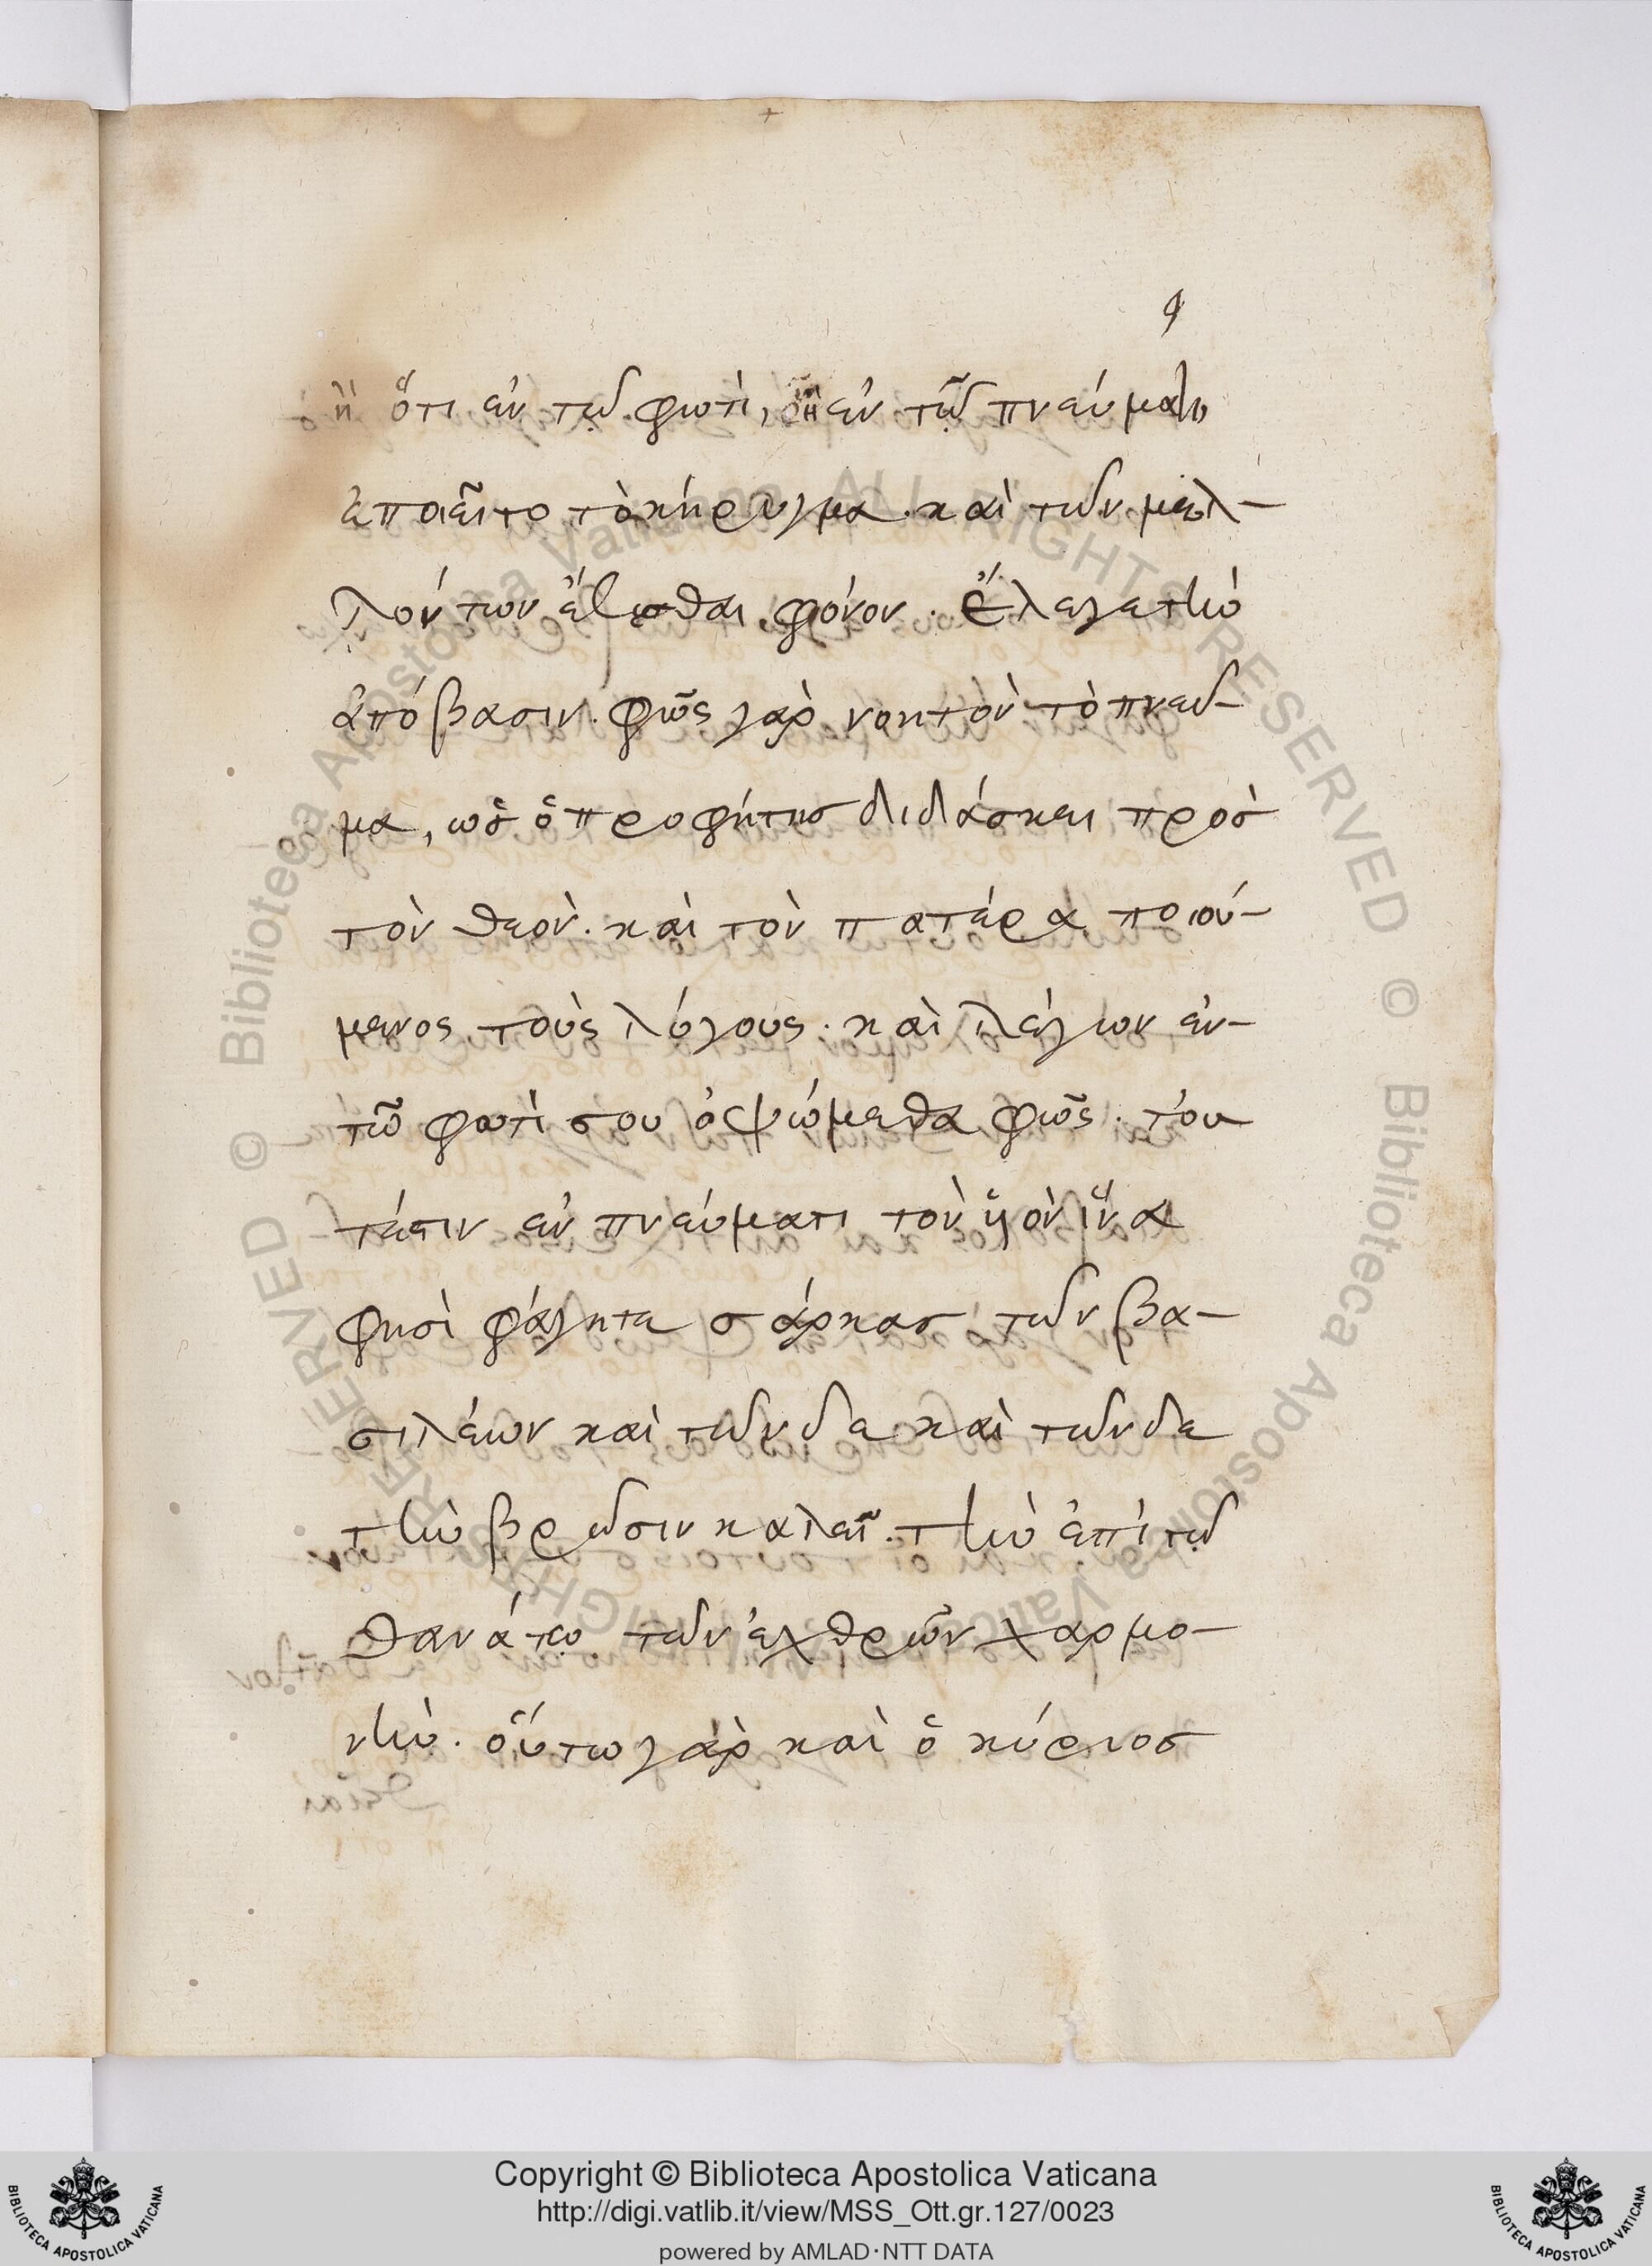 9
ἢ ὅτι ἐν τῷ φωτί, ἢ ἐν τῷ πνεύματι,
ἐποιεῖτο τὸ κήρυγμα. καὶ τῶν μελ-
λόντων ἔσεσθαι φόνον. ἔλεγε τὴν
ἀπόβασιν. φῶς γὰρ νοητὸν τὸ πνεῦ-
μα, ὡς ὁ προφήτης διδάσκει πρὸς
τὸν θεὸν. καὶ τὸν πατέρα ποιού-
μενος τοὺς λόγους. καὶ λέγων ἐν
τῷ φωτί σου ὀψώμεθα φῶς. του
τέστιν ἐν πνεύματι τὸν ὑιὸν ἵνα
φησὶ φάγητε σάρκας τῶν βα-
σιλέων καὶ τῶνδε καὶ τῶνδε
τὴν βρῶσιν καλεῖ. τὴν ἐπὶ τῷ
θανάτῳ τῶν ἐχθρῶν χαρμο-
νὴν. οὕτω γὰρ καὶ ὁ κύριος
© Biblioteca Apostolica Vaticana ALL RIGHTS RESERVED
© Biblioteca Apostolica Vaticana ALL RIGHTS RESERVED
Copyright © Biblioteca Apostolica Vaticana
http://digi.vatlib.it/view/MSS_Ott.gr.127/0023
powered by AMLAD·NTT DATA
BIBLIOTECA APOSTOLICA VATICANA
BIBLIOTECA APOSTOLICA VATICANA